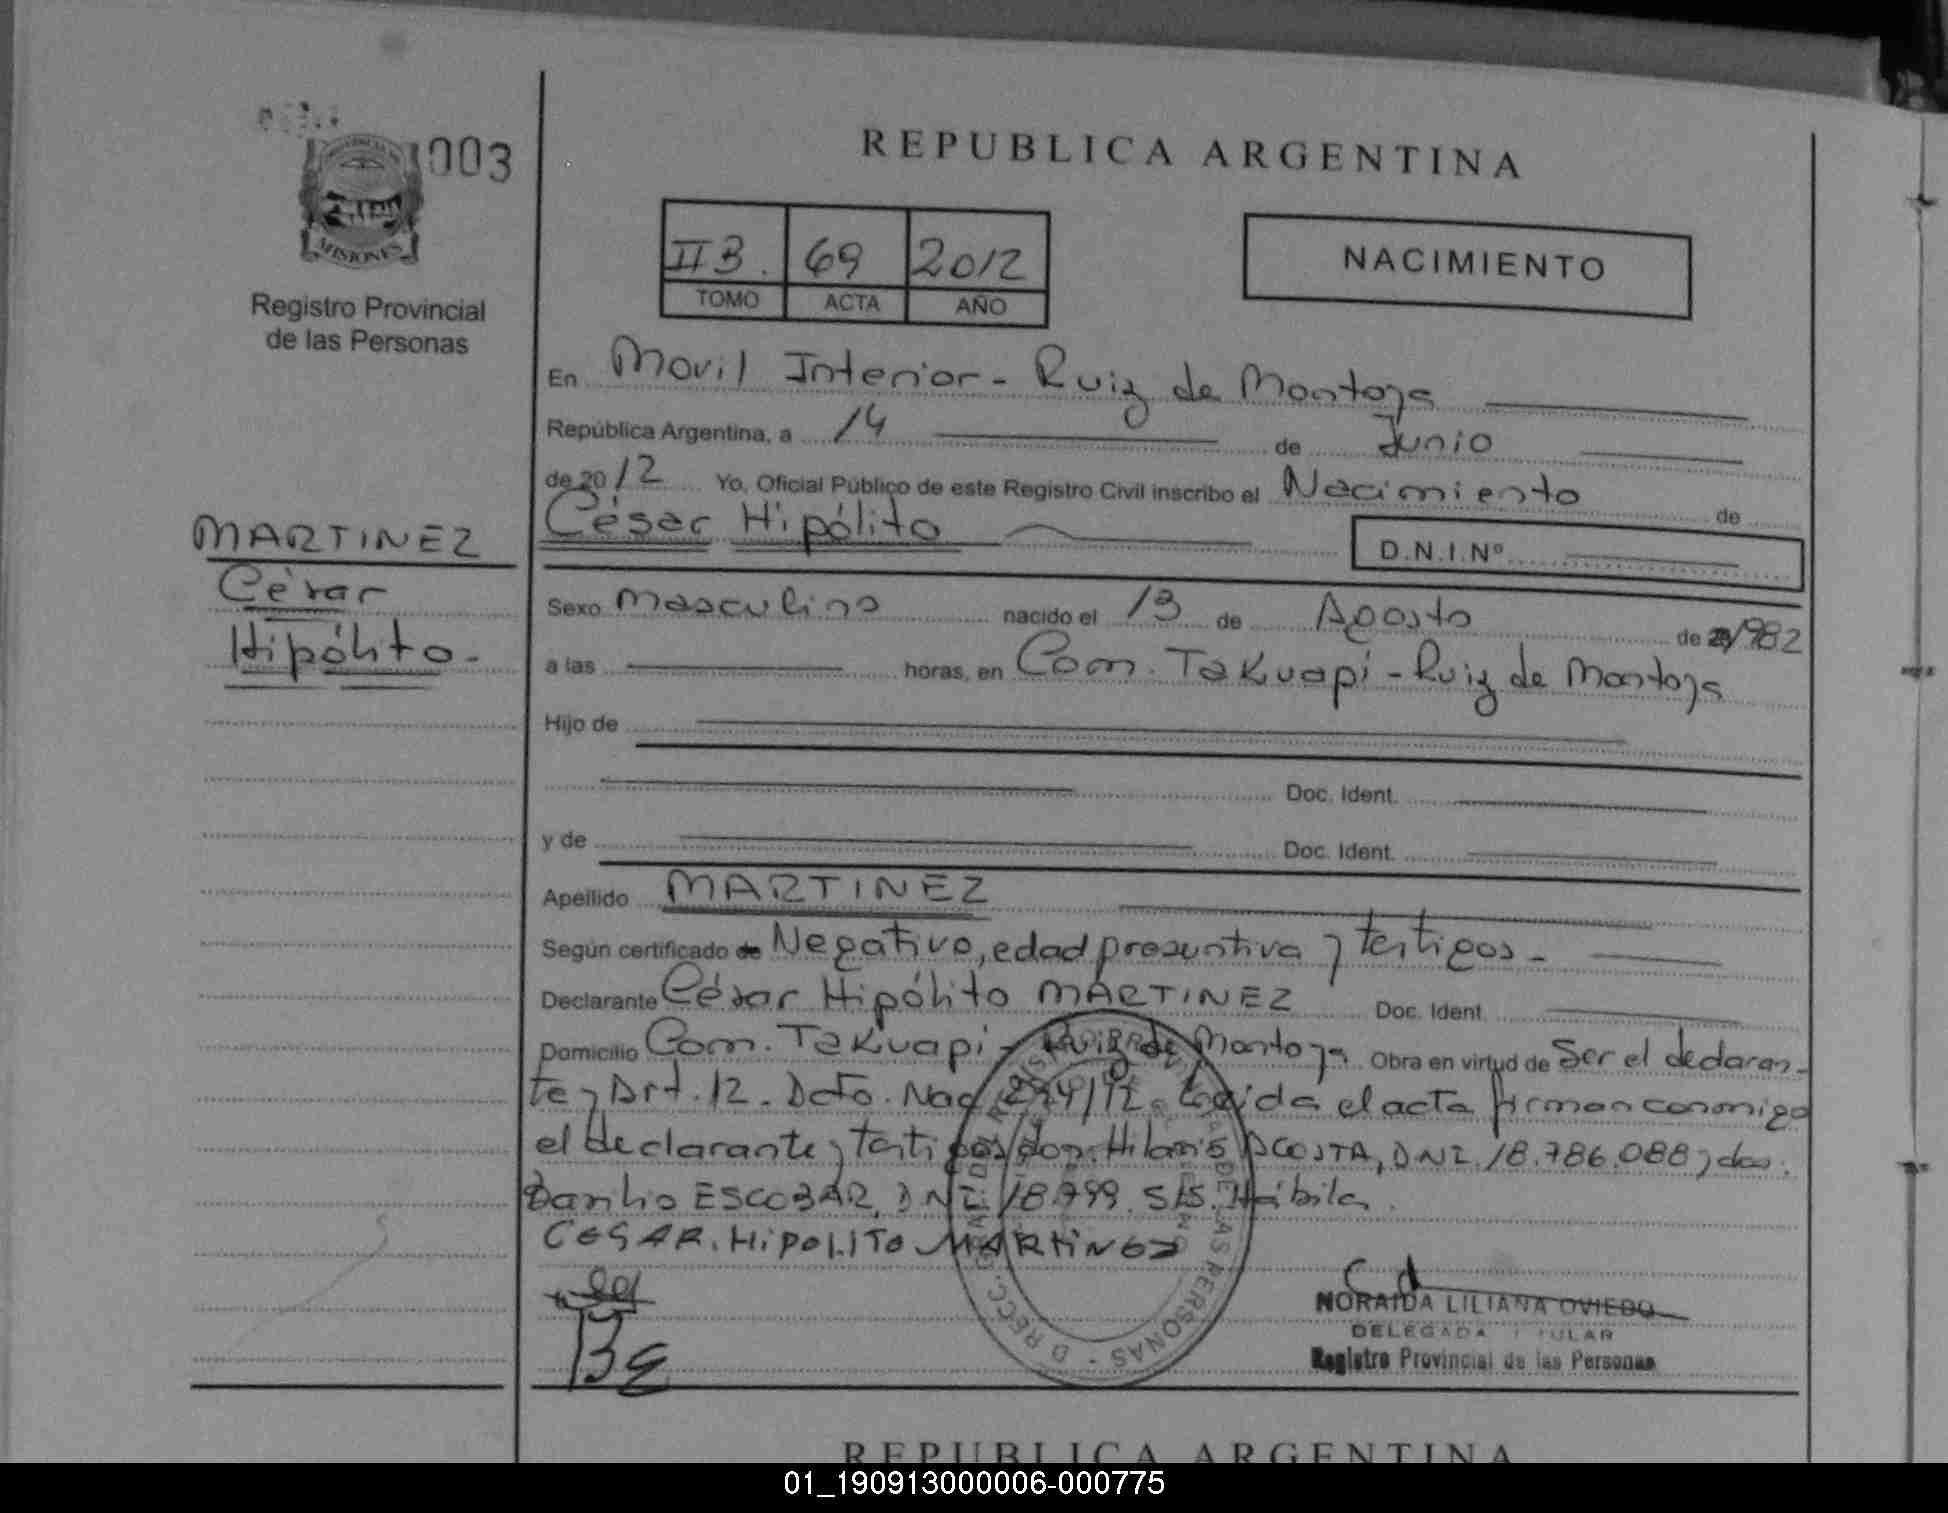 003
MISIONES
Registro Provincial
de las Personas
REPUBLICA ARGENTINA
II B. 69 2012
TOMO ACTA AÑO
NACIMIENTO
En Movil Interior - Ruiz de Montoya
República Argentina, a 14 de Junio
de 2012 Yo, Oficial Público de este Registro Civil inscribo el Nacimiento de
César Hipólito
D.N.I.Nº
MARTINEZ
César
Hipólito-
Sexo masculino nacido el 13 de Agosto de 1982
a las horas, en Com. Takuapi - Ruiz de Montoya
Hijo de
Doc. Ident.
y de Doc. Ident.
Apellido MARTINEZ
Según certificado de Negativo, edad presuntiva y testigos -
Declarante César Hipólito MARTINEZ Doc. Ident.
Domicilio Com. Takuapi - Ruiz de Montoya Obra en virtud de Ser el declaran-
te y Art. 12. Dcto. Nac. Leida el acta firman conmigo
el declarante y testigos don. Hilario ACOSTA, DNI. 18.786.088 y don.
Danilo ESCOBAR, DNI. 18.799. Hábiles.
CESAR. HIPOLITO MARTINEZ
NORAIDA LILIANA OVIEDO
DELEGADA TITULAR
Registro Provincial de las Personas
DE LAS PERSONAS
REPUBLICA ARGENTINA
01_190913000006-000775